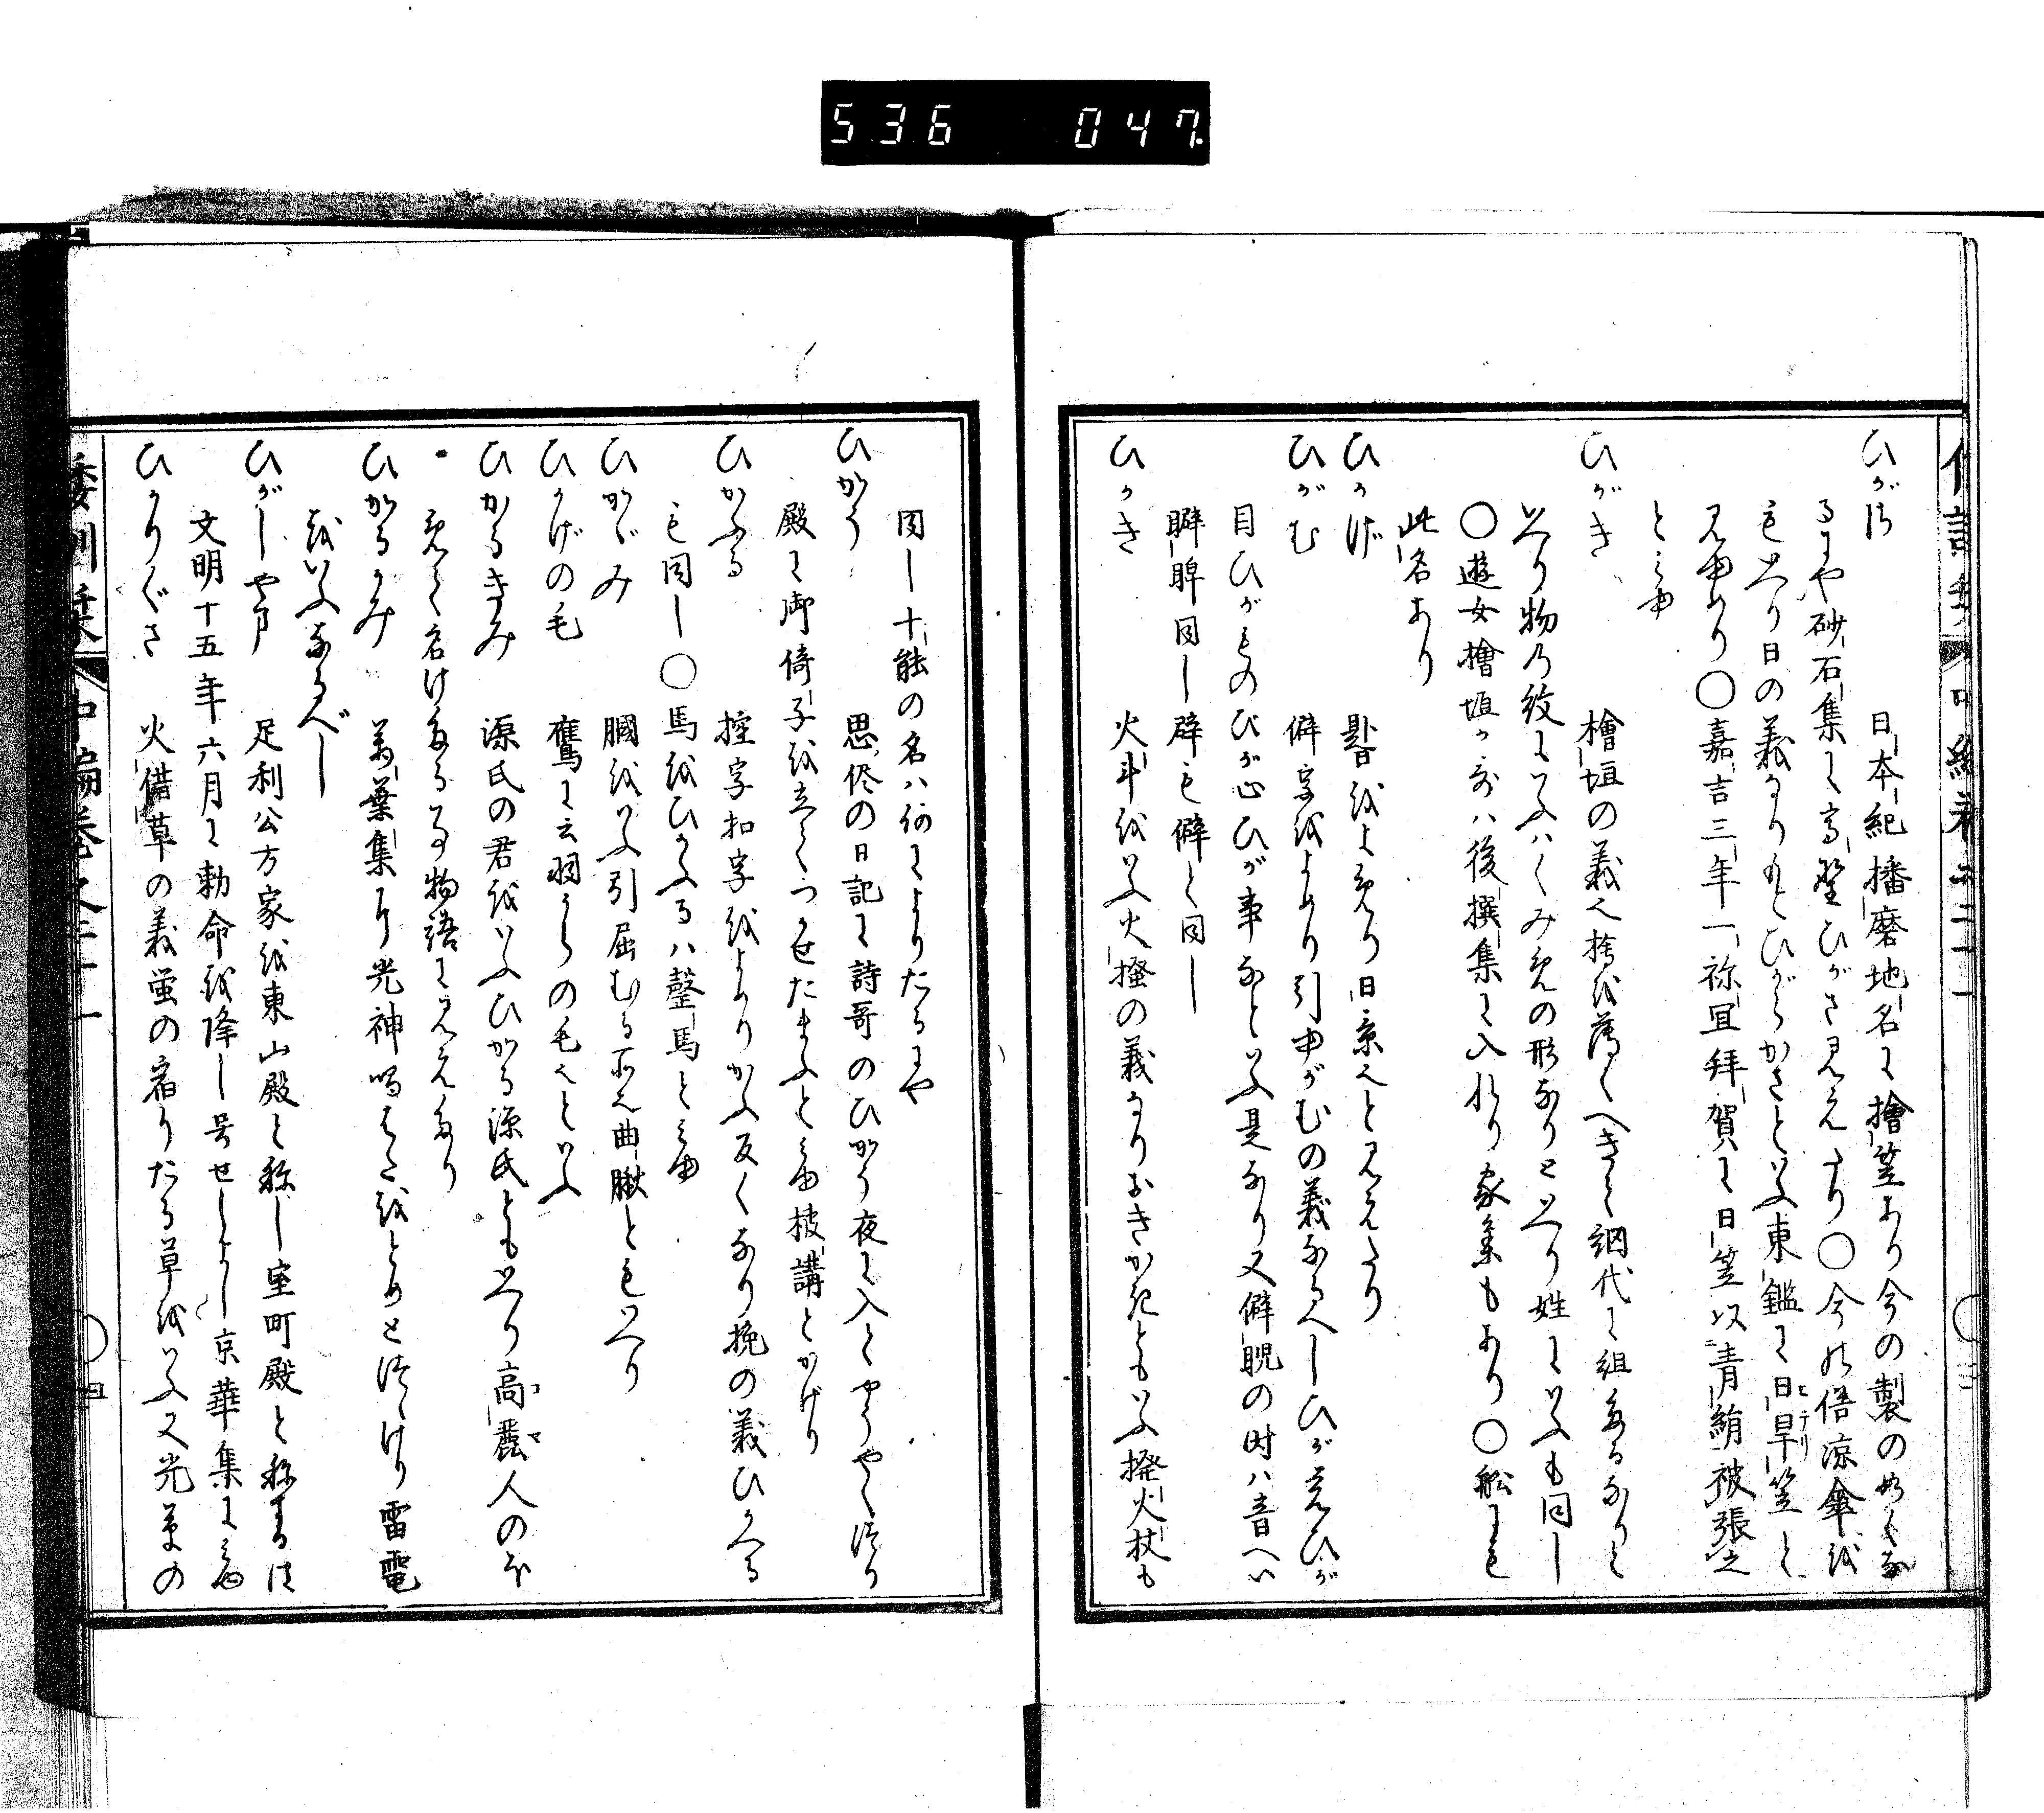 536 047
ひがさ 日本紀播磨地名に檜笠あり今の製の如くな
るにや砂石集に高野ひがさ見えたり〇今の俗涼傘を
もいへり日の義なりもとひがらかさといふ東鑑に日旱笠と
見ゆめり〇嘉吉三年一祢宜拜賀に日笠以青絹被張之
とみゆ
ひがき 檜垣の義也檜を薄くへぎて網代に組たるなりと
いへり物の紋にいふハくみめの形なりといへり姓にいふも同し
〇遊女檜垣か哥ハ後撰集に入れり家集もあり〇船にも
此名あり
ひかげ 晷をよめり日景也と見えたり
ひがむ 僻字をよめり引ゆがむの義なるへしひが覚ひが
目ひがものひが心ひが事なといふ是なり又僻睨の時ハ音へい
聬睥同し辟も僻と同し
ひかき 火斗をいふ火掻の義なりおきかきともいふ撥火杖も
同し十能の名ハ何によりたるにや
ひかう 思侭の日記に詩哥のひかう夜に入てやうやく終り
殿に御倚子を立てつかせたまふとみゆ披講とかけり
ひかふる 控字扣字をよめりかふ反くなり挽の義ひかへる
も同し〇馬をひかふるハ罄馬とみゆ
ひかゞみ 膕をいふ引屈むる所也曲脉ともいへり
ひかげの毛 鷹に云羽うらの毛也といふ
ひかるきみ 源氏の君をいふひかる源氏ともいへり高麗人のほ
コマ
めて名けたる事物語に見えたり
ひかるかみ 萬葉集に光神鳴はたをとめとつゝけり雷電
をいふなるべし
ひがしやま 足利公方家を東山殿と称し室町殿と称するは
文明十五年六月に勅命を降し号せしよし京華集にみゆ
ひかりぐさ 火備草の義蛍の宿りたる草をいふ又光草の
倭訓栞 中編巻之二十一